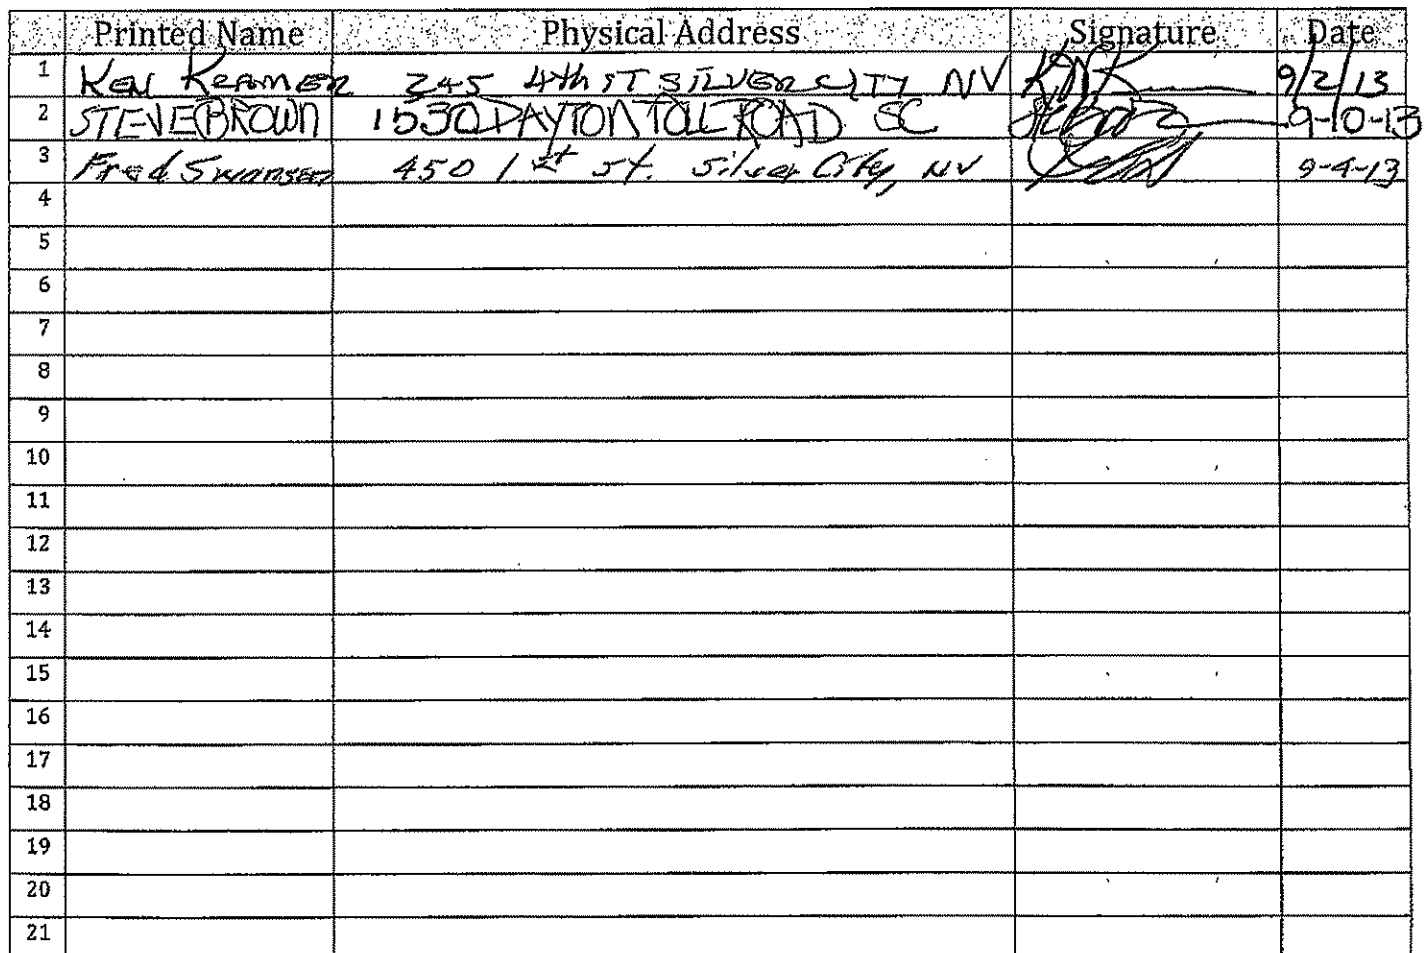 Printed Name Physical Address Signature Date
1 KEN KERAMER 245 4th ST SILVER CITY NV 9/2/13
2 STEVE BROWN 1530 DAYTON TOLL ROAD SC 9-10-13
3 Fred Swanson 450 1st st. Silver City, NV 9-4-13
4
5
6
7
8
9
10
11
12
13
14
15
16
17
18
19
20
21